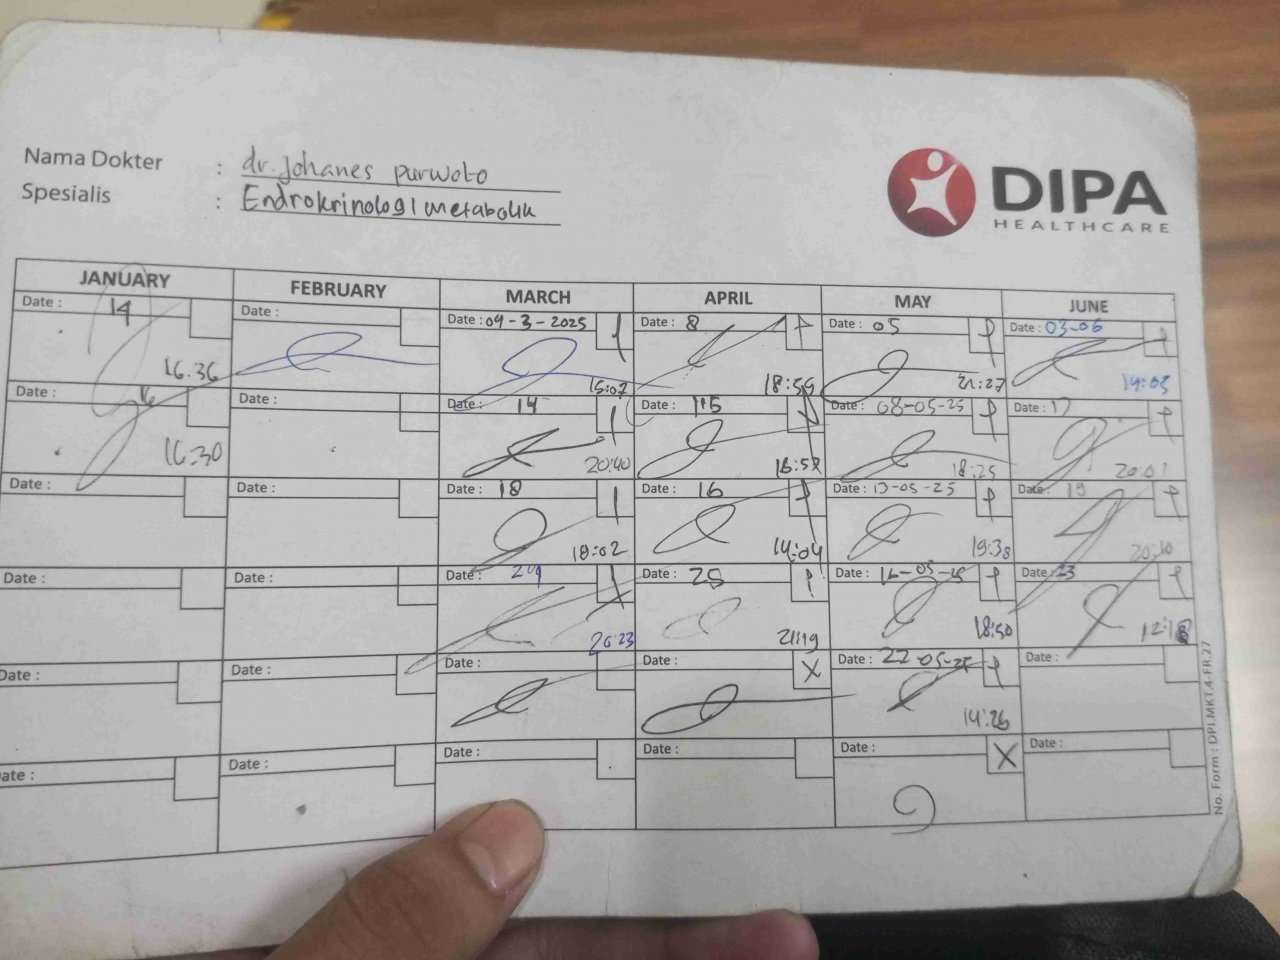 Nama Dokter : dr. Johanes purwoto
Spesialis : Endrokrinologi metabolik
DIPA
HEALTHCARE
JANUARY FEBRUARY MARCH APRIL MAY JUNE
Date : 14 Date : Date : 09-3-2025 Date : 8 Date : 05 Date : 03-06
16.36 15:07 18:55 21:27 19:05
Date : 16 Date : Date : 14 Date : 15 Date : 08-05-25 Date : 17
16:30 20:40 16:58 18:25 20:01
Date : Date : Date : 18 Date : 16 Date : 13-05-25 Date : 19
18:02 14:04 19:38 20:10
Date : Date : Date : 24 Date : 25 Date : 16-05-25 Date : 23
20:23 21:19 18:50 12:18
Date : Date : Date : Date : X Date : 22-05-25 Date :
14:26
Date : Date : Date : Date : Date : X Date :
No. Form : DPI.MKT.4-FR.27